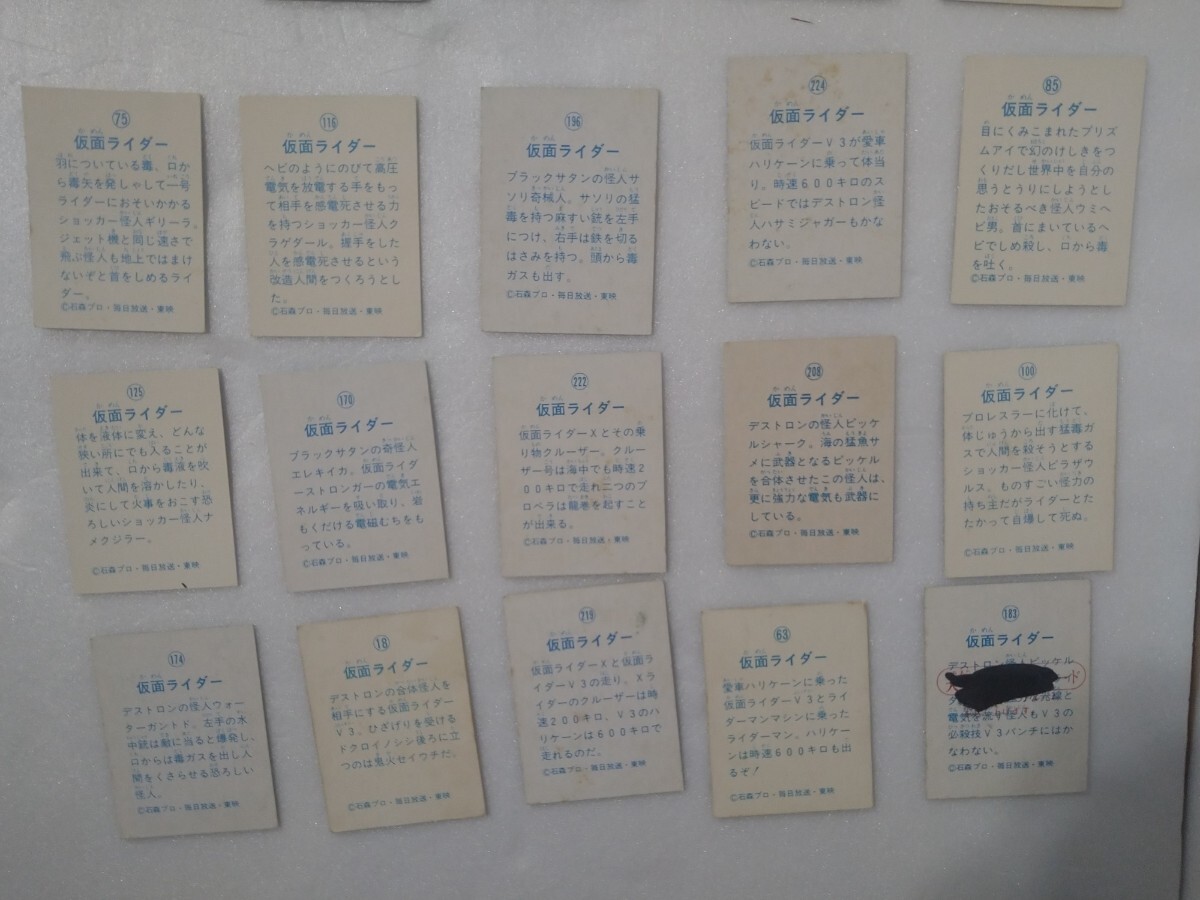 75
仮面ライダー
羽についている毒、口か
ら毒矢を発しゃして一号
ライダーにおそいかかる
ショッカー怪人ギリーラ。
ジェット機と同じ速さで
飛ぶ怪人も地上ではまけ
ないぞと首をしめるライ
ダー。
©石森プロ・毎日放送・東映
116
仮面ライダー
ヘビのようにのびて高圧
電気を放電する手をもっ
て相手を感電死させる力
を持つショッカー怪人ク
ラゲダール。握手をした
人を感電死させるという
改造人間をつくろうとし
た。
©石森プロ・毎日放送・東映
196
仮面ライダー
ブラックサタンの怪人サ
ソリ奇械人。サソリの猛
毒を持つ麻すい銃を左手
につけ、右手は鉄を切る
はさみを持つ。頭から毒
ガスも出す。
©石森プロ・毎日放送・東映
224
仮面ライダー
仮面ライダーV3が愛車
ハリケーンに乗って体当
り。時速600キロのス
ピードではデストロン怪
人ハサミジャガーもかな
わない。
©石森プロ・毎日放送・東映
85
仮面ライダー
目にくみこまれたプリズ
ムアイで幻のけしきをつ
くりだし世界中を自分の
思うとうりにしようとし
たおそるべき怪人ウミヘ
ビ男。首にまいているヘ
ビでしめ殺し、口から毒
を吐く。
©石森プロ・毎日放送・東映
125
仮面ライダー
体を液体に変え、どんな
狭い所にでも入ることが
出来て、口から毒液を吹
いて人間を溶かしたり、
炎にして火事をおこす恐
ろしいショッカー怪人ナ
メクジラー。
©石森プロ・毎日放送・東映
170
仮面ライダー
ブラックサタンの奇怪人
エレキイカ。仮面ライダ
ーストロンガーの電気エ
ネルギーを吸い取り、岩
もくだける電磁むちをも
っている。
©石森プロ・毎日放送・東映
222
仮面ライダー
仮面ライダーXとその乗
り物クルーザー。クルー
ザー号は海中でも時速2
00キロで走れ二つのプ
ロペラは竜巻を起すこと
が出来る。
©石森プロ・毎日放送・東映
208
仮面ライダー
デストロンの怪人ピッケ
ルシャーク。海の猛魚サ
メに武器となるピッケル
を合体させたこの怪人は、
更に強力な電気も武器に
している。
©石森プロ・毎日放送・東映
100
仮面ライダー
プロレスラーに化けて、
体じゅうから出す猛毒ガ
スで人間を殺そうとする
ショッカー怪人ピラザウ
ルス、ものすごい怪力の
持ち主だがライダーとた
たかって自爆して死ぬ。
©石森プロ・毎日放送・東映
174
仮面ライダー
デストロンの怪人ウォー
ターガントド。左手の水
中銃は敵に当ると爆発し、
口からは毒ガスを出し人
間をくさらせる恐ろしい
怪人。
©石森プロ・毎日放送・東映
18
仮面ライダー
デストロンの合体怪人を
相手にする仮面ライダー
V3。ひざげりを受ける
ドクロイノシシ後ろに立
つのは鬼火セイウチだ。
©石森プロ・毎日放送・東映
219
仮面ライダー
仮面ライダーXと仮面ラ
イダーV3の走り。Xラ
イダーのクルーザーは時
速200キロ、V3のハ
リケーンは600キロで
走れるのだ。
©石森プロ・毎日放送・東映
63
仮面ライダー
愛車ハリケーンに乗った
仮面ライダーV3とライ
ダーマンマシンに乗った
ライダーマン。ハリケー
ンは時速600キロも出
るぞ!
©石森プロ・毎日放送・東映
183
仮面ライダー
デストロン怪人ピッケル
ド
電気を流す怪人もV3の
必殺技V3パンチにはか
なわない。
©石森プロ・毎日放送・東映